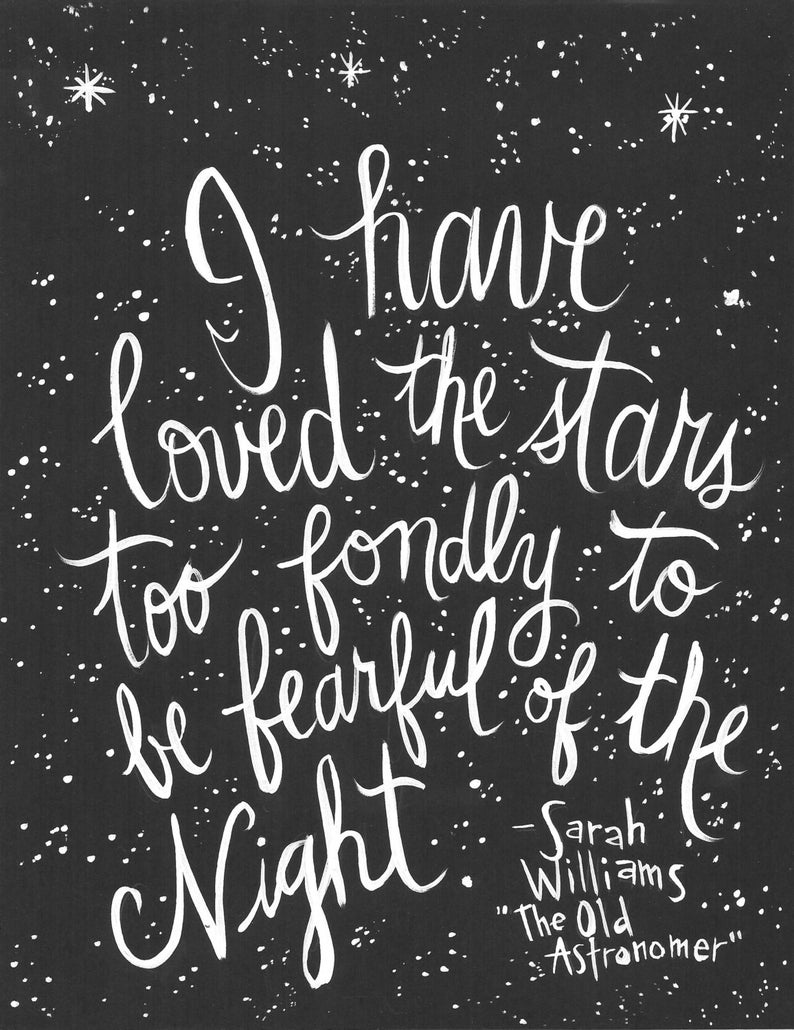 I have
loved the stars
too fondly to
be fearful of the
Night.
—Sarah
Williams
"The Old
Astronomer"